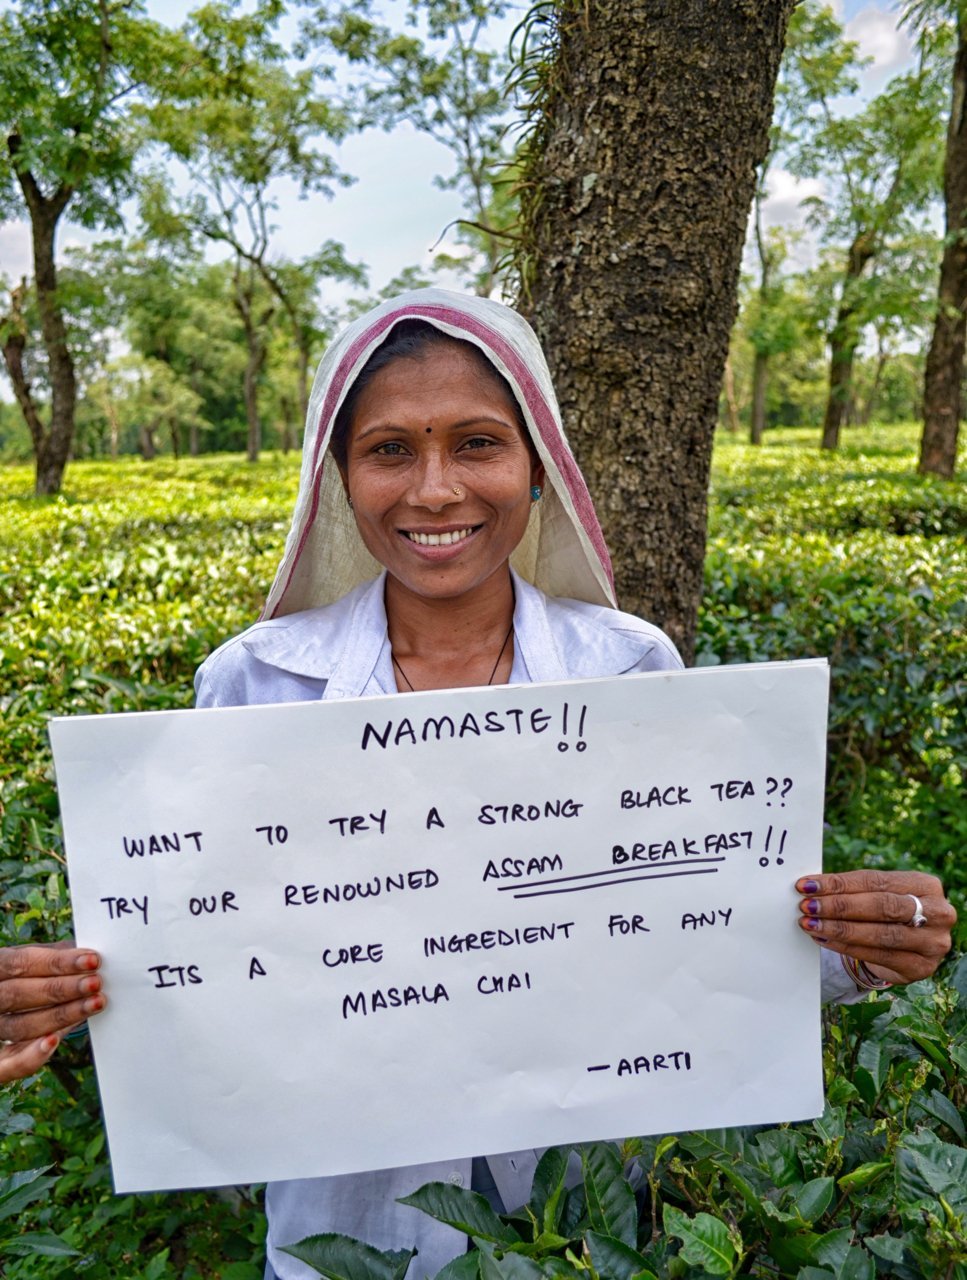 NAMASTE!!
WANT TO TRY A STRONG BLACK TEA??
TRY OUR RENOWNED ASSAM BREAKFAST!!
ITS A CORE INGREDIENT FOR ANY
MASALA CHAI
—AARTI